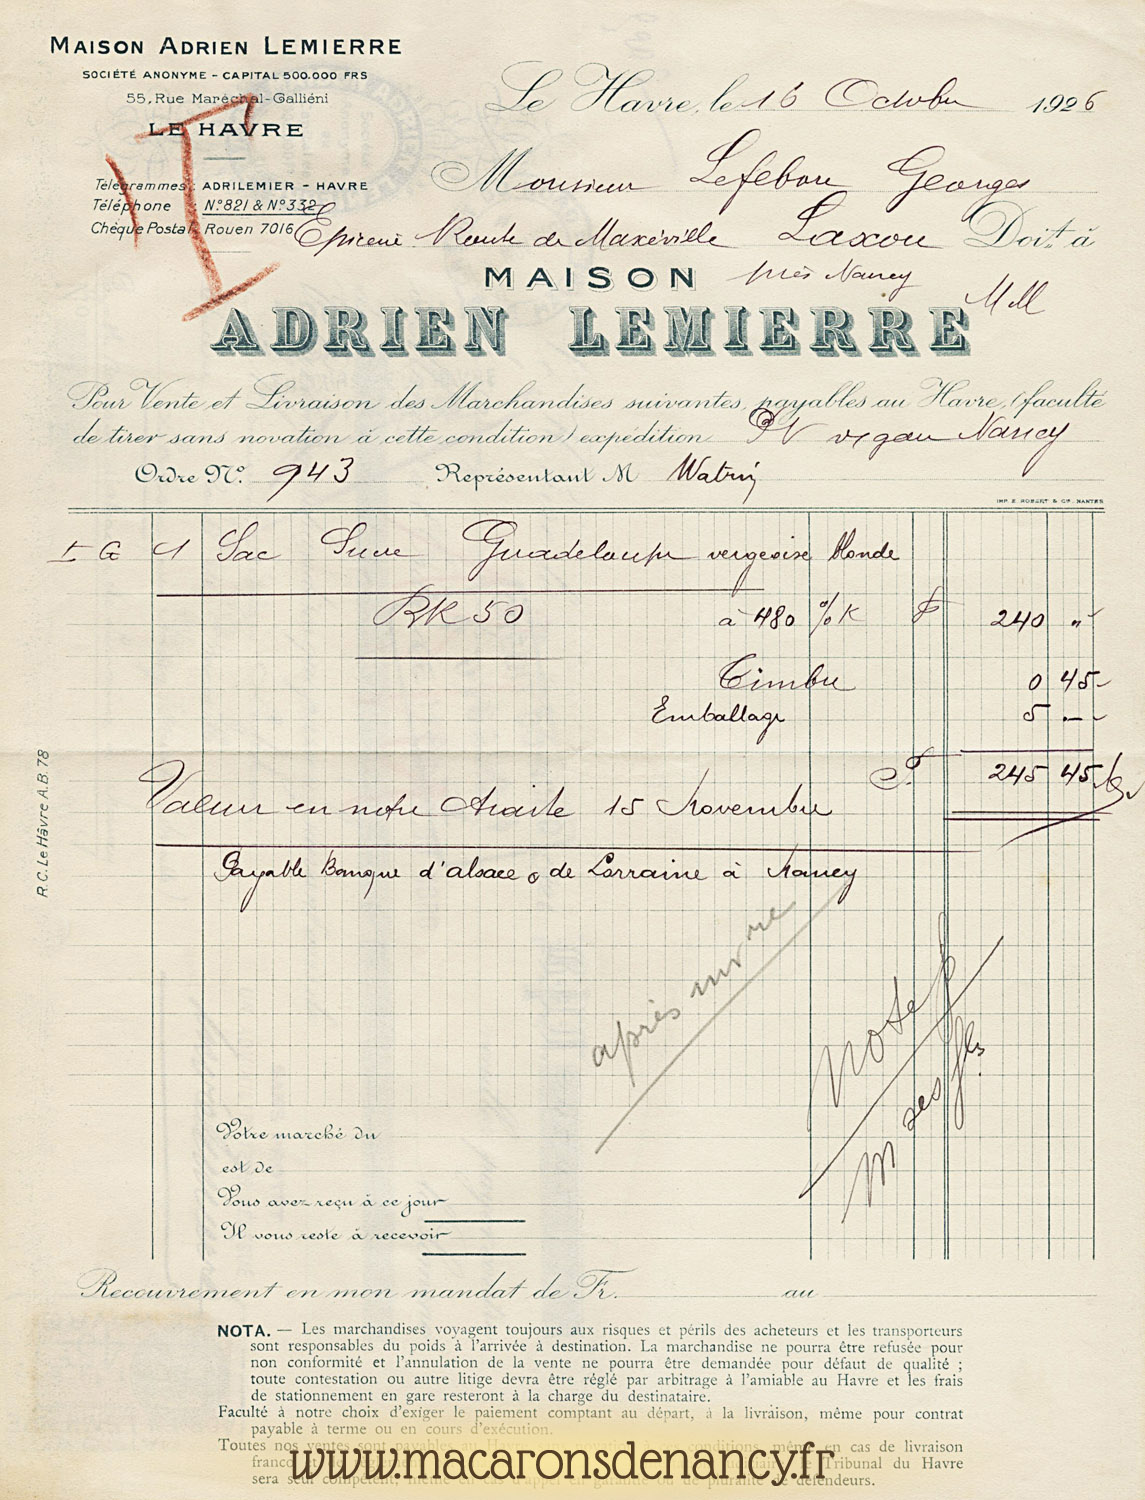 MAISON ADRIEN LEMIERRE
SOCIÉTÉ ANONYME - CAPITAL 500.000 FRS
55, Rue Maréchal-Galliéni
LE HAVRE
Le Havre, le 16 Octobre 1926
Télégrammes: ADRILEMIER - HAVRE
Téléphone N°821 & N°332
Chèque Postal, Rouen 7016
Monsieur Lefebvre Georges
Epicerie Route de Maxéville Laxou Doit à
près Nancy
M M
MAISON
ADRIEN LEMIERRE
Pour Vente et Livraison des Marchandises suivantes, payables au Havre, (faculté
de tirer sans novation à cette condition) expédition PV Nancy
Ordre N°. 943 Représentant M Watrin
IMP. E. ROBERT & Cie. NANTES
L G 1 Sac Sucre Guadeloupe vergeoise blonde
BK 50 à 480 % K F 240 "
Timbre 0 45
Emballage 5 —
F 245 45
Valeur en notre traite 15 Novembre
Payable Banque d'alsace & de Lorraine à Nancy
R.C. Le Hâvre A.B. 78
après
Noté
Votre marché du
est de
Vous avez reçu à ce jour
Il vous reste à recevoir
Recouvrement en mon mandat de Fr. au
NOTA. — Les marchandises voyagent toujours aux risques et périls des acheteurs et les transporteurs
sont responsables du poids à l'arrivée à destination. La marchandise ne pourra être refusée pour
non conformité et l'annulation de la vente ne pourra être demandée pour défaut de qualité ;
toute contestation ou autre litige devra être réglé par arbitrage à l'amiable au Havre et les frais
de stationnement en gare resteront à la charge du destinataire.
Faculté à notre choix d'exiger le paiement comptant au départ, à la livraison, même pour contrat
payable à terme ou en cours d'exécution.
Toutes nos ventes sont payables au conditions, même en cas de livraison
franco Tribunal du Havre
sera seul compétent, même en cas d'appel en garantie ou de pluralité de défendeurs.
www.macaronsdenancy.fr